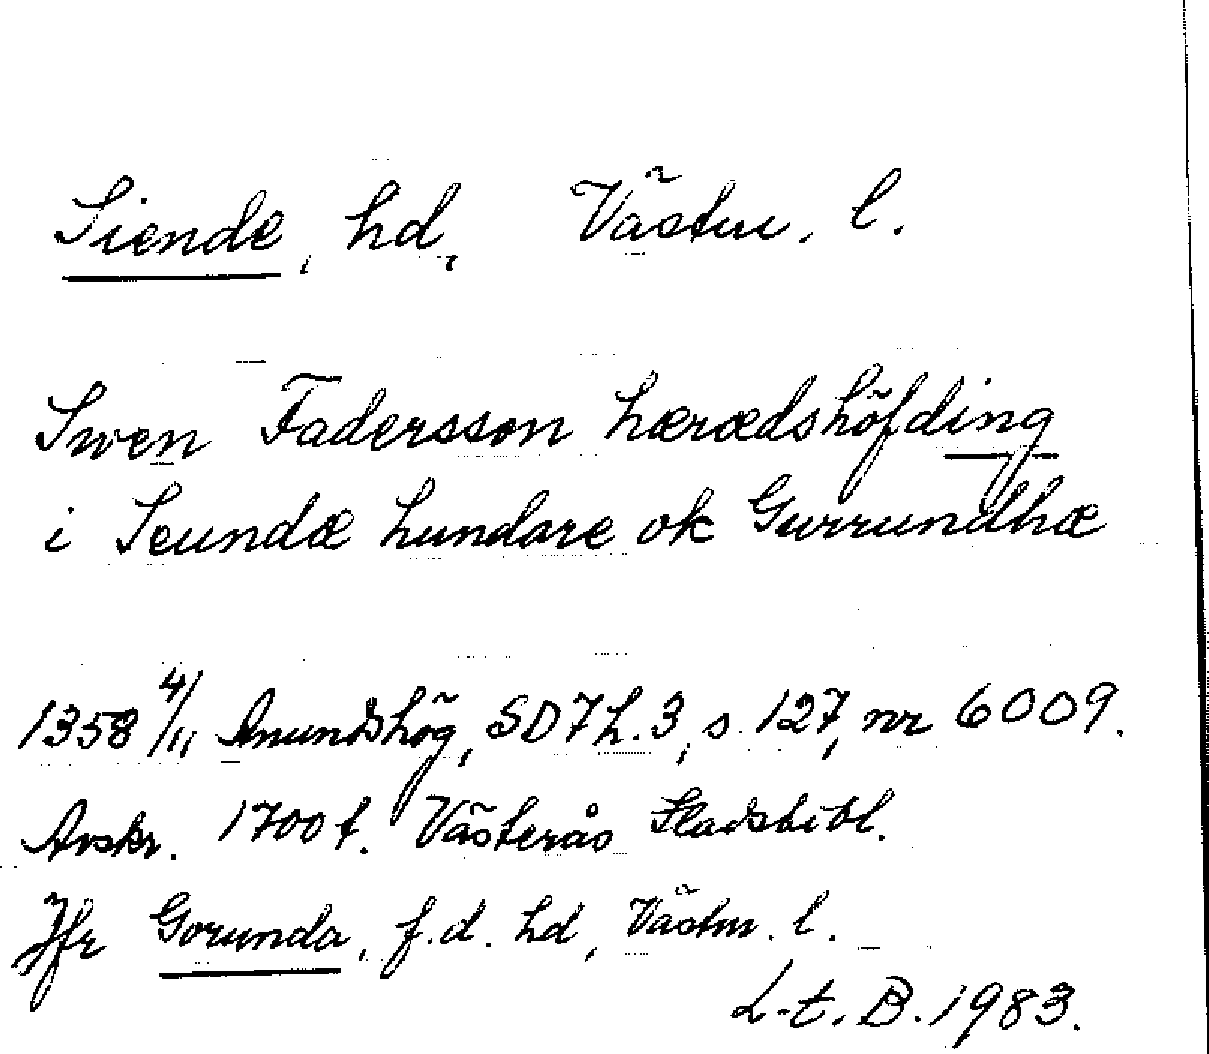 Siende, hd, Västm. l.
Swen Fadersson hærædshöfding
i Seundæ hundare ok Gurrundhæ
1358 4/11 Anundshög, SD 7 h. 3, s. 127, nr 6009.
Avskr. 1700 t. Västerås Stadsbibl.
Jfr Gorunda, f.d. hd, Västm. l.
L-t. B. 1983.